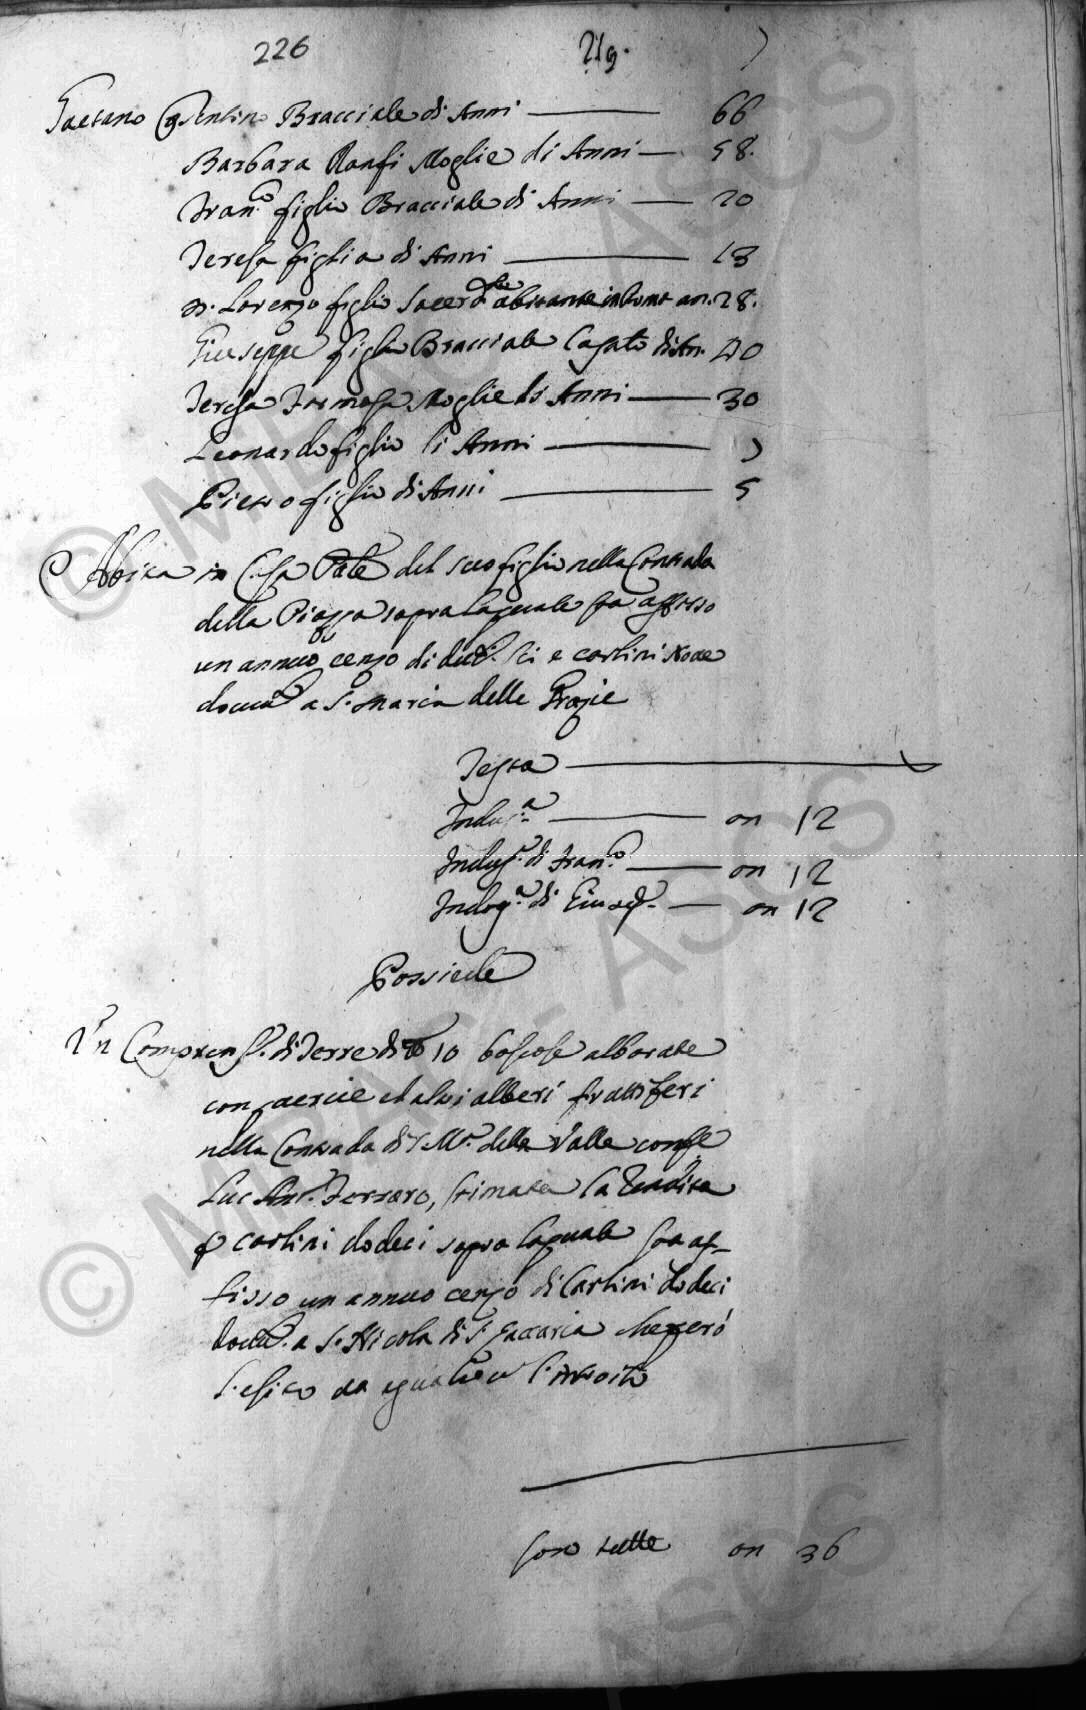 226 219.
Gaetano Cosentino Bracciale di Anni 66
Barbara Ranfi Moglie di Anni 58.
Fran.co figlio Bracciale di Anni 20
Teresa figlia di Anni 13
D. Lorenzo figlio Sacerd.te abitante in Roma an. 28.
Giuseppe figlio Bracciale Casato di An. 40
Teresa Formosa Moglie di Anni 30
Leonardo figlio di Anni
Pietro figlio di Anni 5
Abita in Casa del suo figlio nella Contrada
della Piazza sopra la quale sta affisso
un annuo cenzo di duc.ti sei e carlini Nove
dovuto a S. Maria delle Grazie
Testa
Indus.a on 12
Indus.a di Fran.co on 12
Indus.a di Giusep.e on 12
Possiede
Un Comprens.o di Terre di 10 boscose alborate
con quercie et altri alberi fruttiferi
nella Contrada di S. M.a della Valle confine
Luc Ant.o Ferraro, stimata la rendita
p carlini dodeci sopra la quale sta af-
fisso un annuo cenzo di Carlini dodeci
dovuto a S. Nicola di S. Zaccaria che però
l'esito va eguale a l'introito
Sono tutte on 36
© MIBAC - ASCS
© MIBAC - ASCS
ASCS